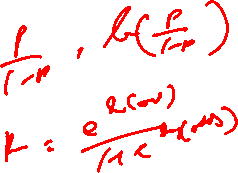 p/(1-p), ln(p/(1-p))
p = e^{ln(odds)}/(1+e^{ln(odds)})